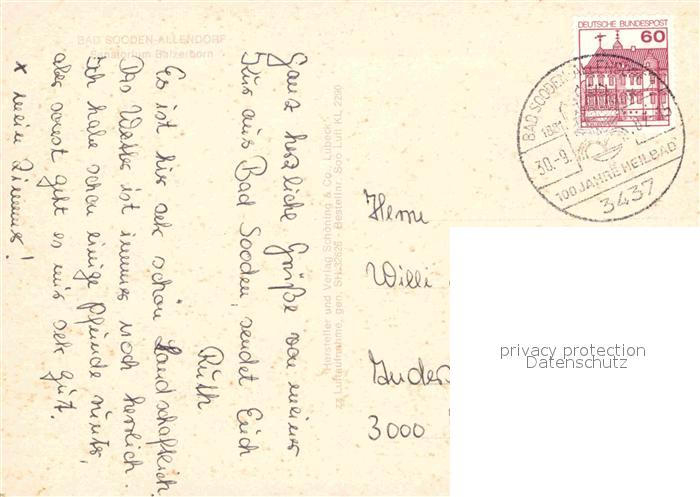 BAD SOODEN-ALLENDORF
Sanatorium Balzerborn
Ganz herzliche Grüße von meiner
Kur aus Bad Sooden, sendet Euch
Ruth
Es ist hir sehr schön Landschaftlich
Das Wetter ist immer noch herrlich.
Ich habe schon einige Pfunde runter,
aber sonst geht es mir sehr gut.
x mein Zimmer!
Hersteller und Verlag Schöning & Co., Lübeck
Luftaufnahme, gen. SH - Bestellnr. Soo Luft KL 2290
DEUTSCHE BUNDESPOST
60
BAD SOODEN-ALLENDORF
1881
30.-9.
100 JAHRE HEILBAD
3437
Herrn
Willi
3000
privacy protection
Datenschutz